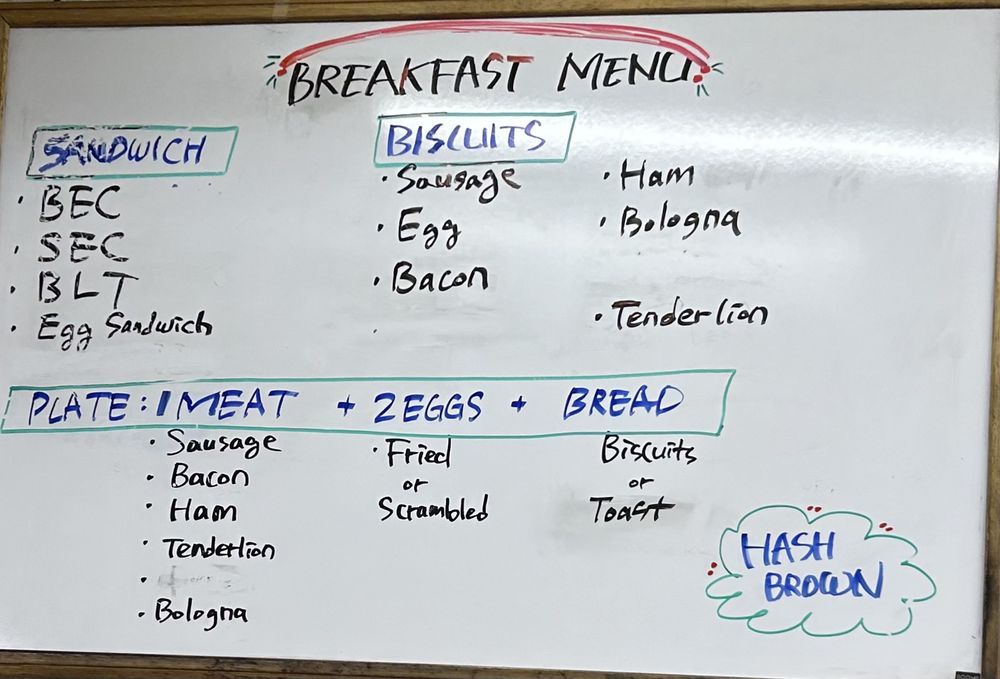 BREAKFAST MENU
SANDWICH
· BEC
· SEC
· BLT
· Egg Sandwich
BISCUITS
· Sausage
· Egg
· Bacon
· Ham
· Bologna
· Tenderlion
PLATE: 1 MEAT + 2 EGGS + BREAD
· Sausage
· Bacon
· Ham
· Tenderlion
· Bologna
· Fried
or
Scrambled
Biscuits
or
Toast
HASH
BROWN